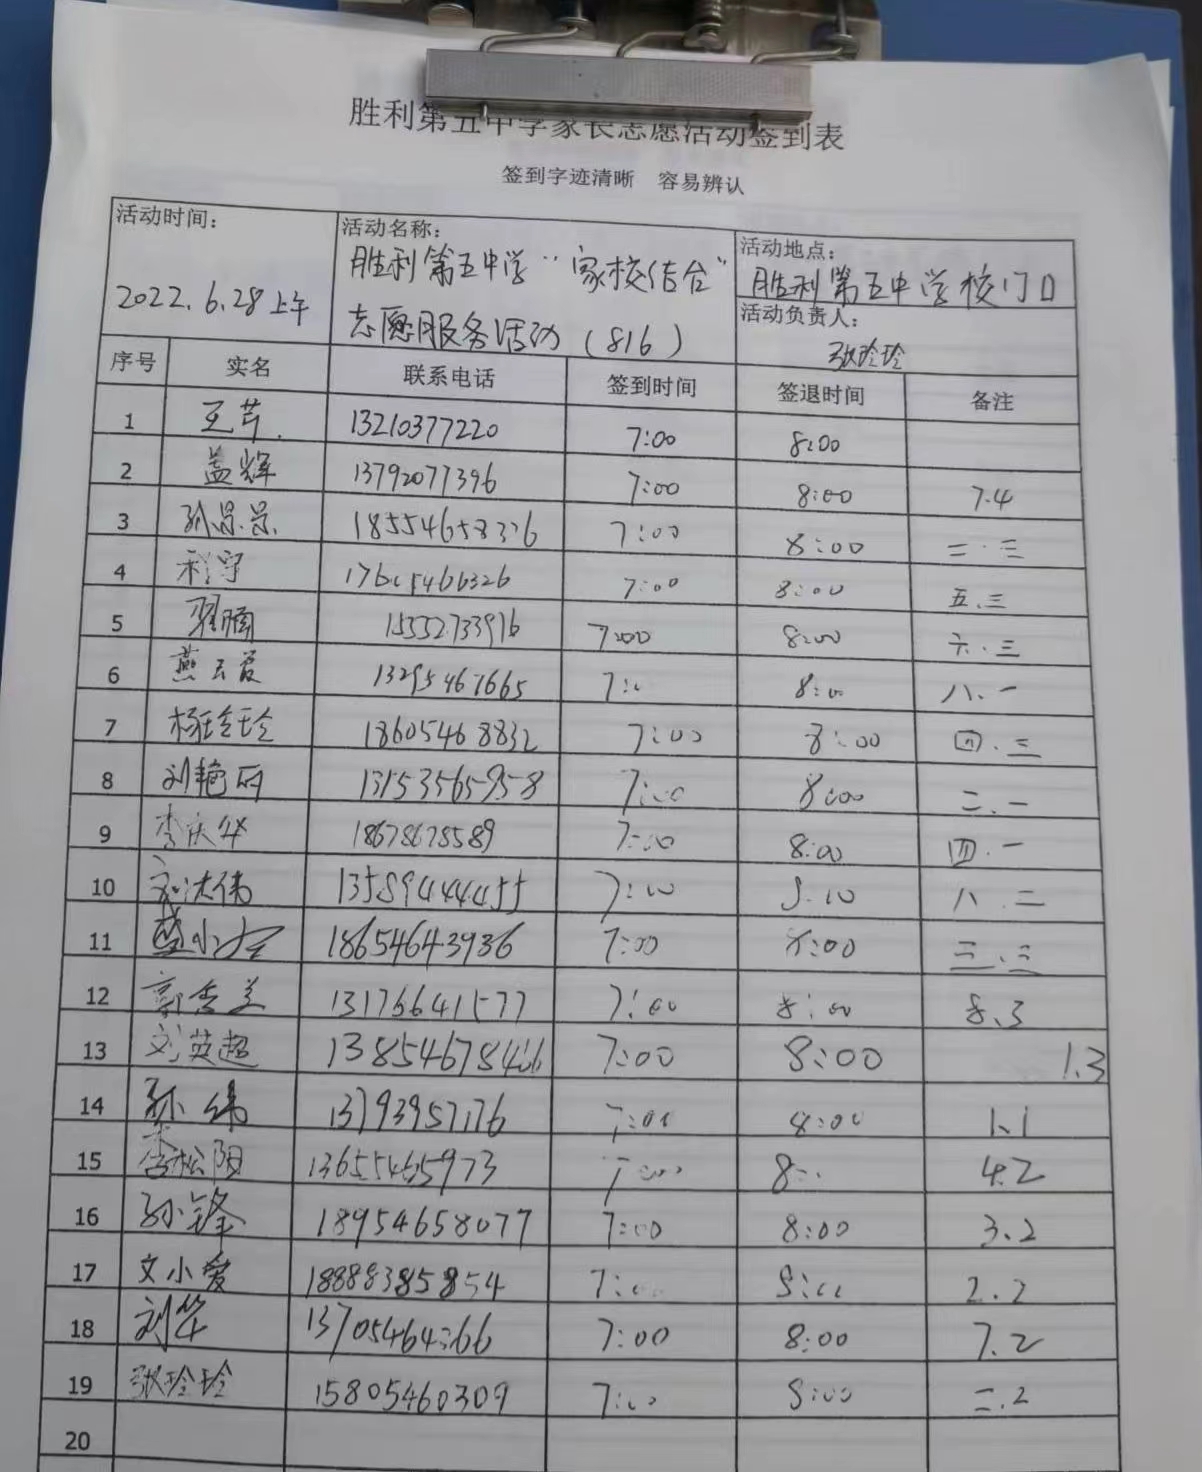 胜利第五中学家长志愿活动签到表
签到字迹清晰 容易辨认
活动时间：
2022.6.28上午
活动名称：
胜利第五中学“家校结合”
志愿服务活动（816）
活动地点：
胜利第五中学校门口
活动负责人：
张玲玲
序号 实名 联系电话 签到时间 签退时间 备注
1 王芹. 13210377220 7:00 8:00
2 盖辉 13792077396 7:00 8:00 7.4
3 孙昙昙 18554658336 7:00 8:00 二.三
4 7:00 8:00 五.三
5 翟腼 15552733976 7:00 8:00 六.三
6 燕云爱 13295467665 7:0 8:00 八.一
7 杨玲玲 18605468832 7:00 8:00 四.三
8 刘艳丽 13153565958 7:00 8:00 二.一
9 李庆华 18678678589 7:00 8:00 四.一
10 刘法伟 13589444455 7:00 8:10 八.二
11 18654643936 7:00 8:00 三.三
12 郭秀兰 13176641577 7:00 8:00 8.3
13 刘英超 7:00 8:00 1.3
14 孙伟 13793957176 7:00 8:00 1.1
15 李松阳 13655465973 7:00 8: 4.2
16 孙锋 18954658077 7:00 8:00 3.2
17 文小爱 18888385854 7:00 8:00 2.2
18 刘华 13705464366 7:00 8:00 7.2
19 张玲玲 15805460309 7:00 8:00 二.2
20